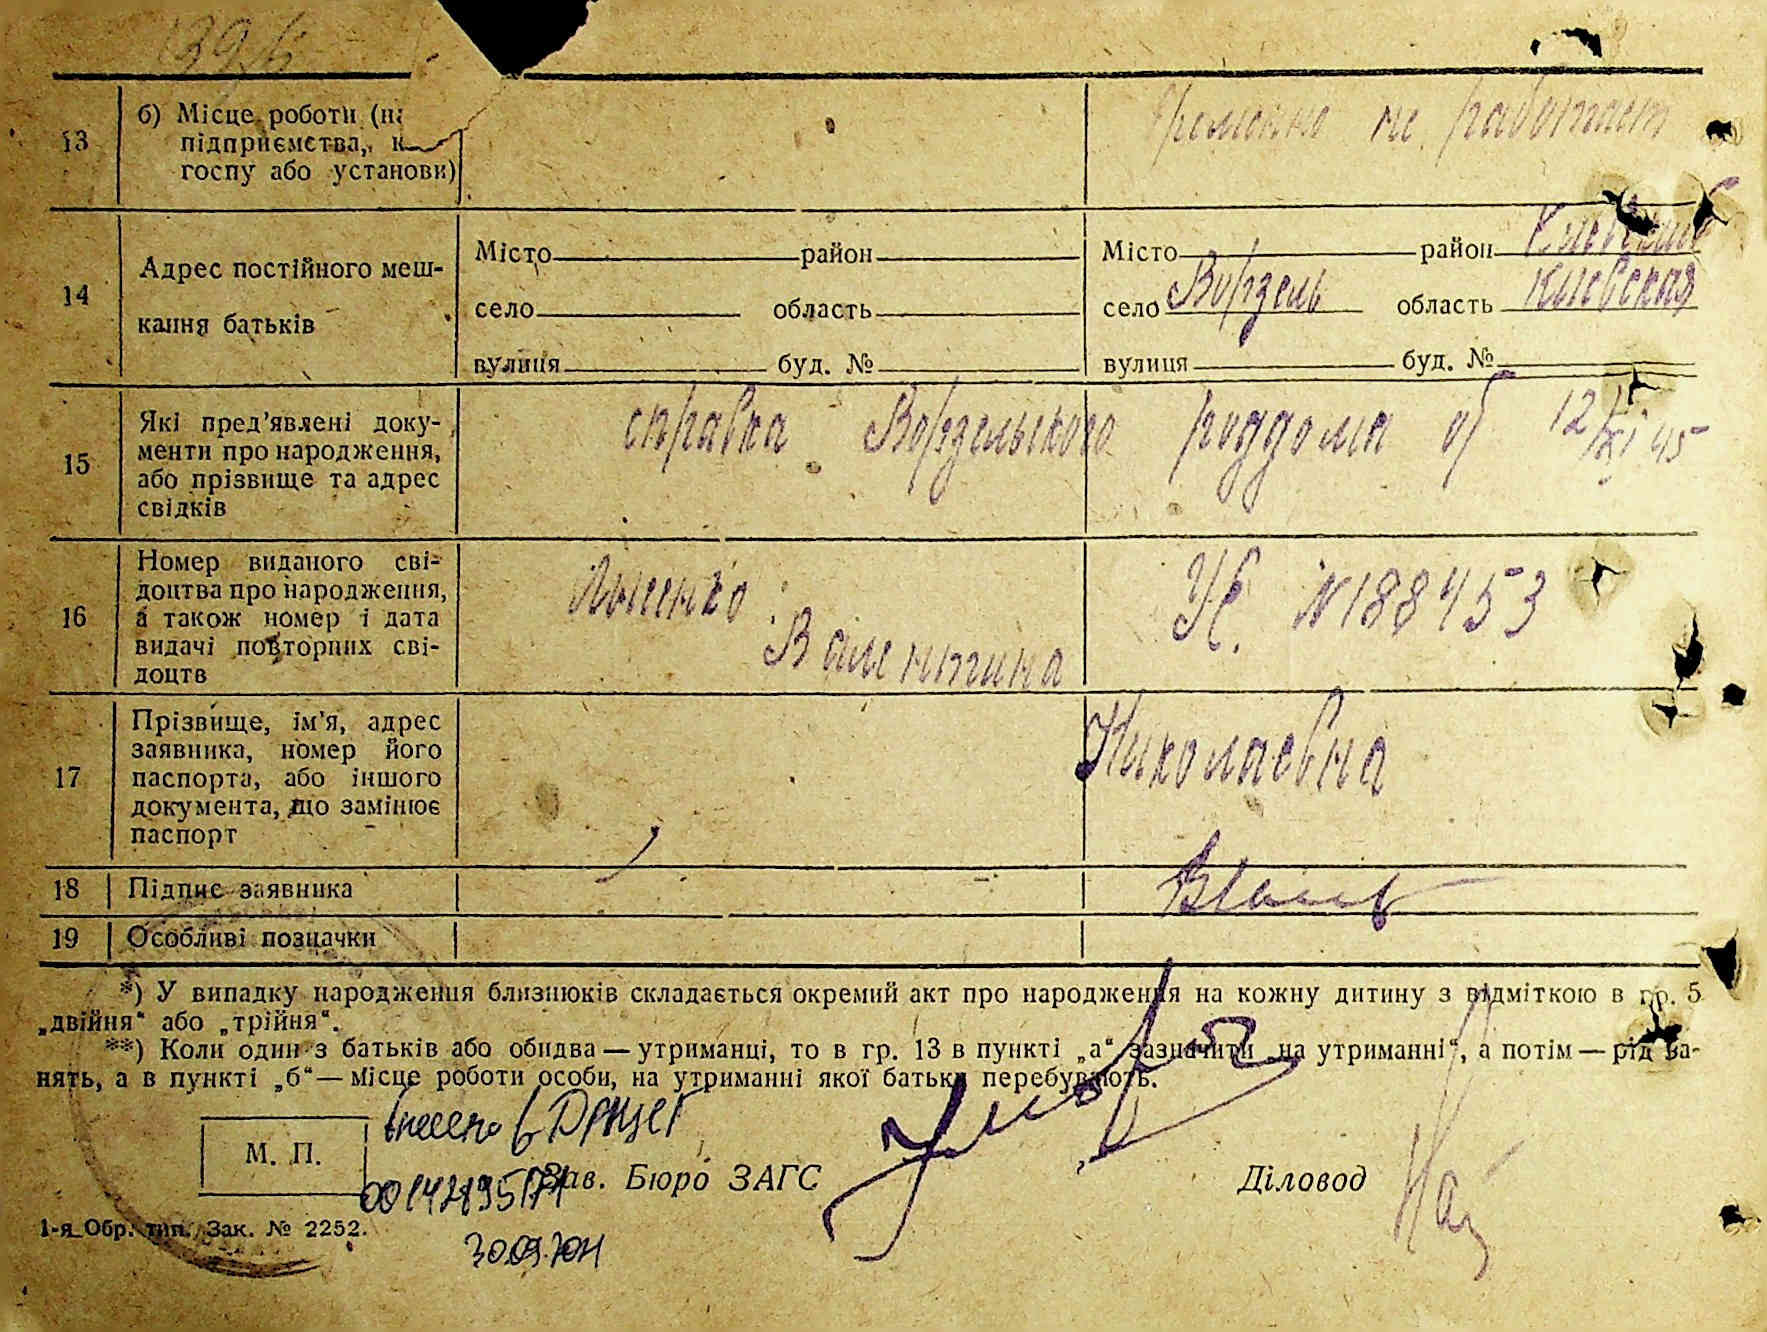 13
б) Місце роботи (на
підприємства, к
госпу або установи)
Временно не работает
14
Адрес постійного меш-
кання батьків
Місто район
село область
вулиця буд. №
Місто район Киевский
село Ворзель область Киевская
вулиця буд. №
15
Які пред’явлені доку-
менти про народження,
або прізвище та адрес
свідків
справка Ворзельского роддома от 12/XI 45
16
Номер виданого сві-
доцтва про народження,
а також номер і дата
видачі повторних сві-
доцтв
УЄ. №188453
Валентина
17
Прізвище, ім’я, адрес
заявника, номер його
паспорта, або іншого
документа, що замінює
паспорт
Николаевна
18 Підпис заявника
19 Особливі позначки
*) У випадку народження близнюків складається окремий акт про народження на кожну дитину з відміткою в гр. 5
„двійня“ або „трійня“.
**) Коли один з батьків або обидва — утриманці, то в гр. 13 в пункті „а“ зазначити „на утриманні“, а потім — рід за-
нять, а в пункті „б“ — місце роботи особи, на утриманні якої батьки перебувають.
внесено в ДРАЦСГ
М. П.
Зав. Бюро ЗАГС
Діловод
1-я Обр. тип. Зак. № 2252.